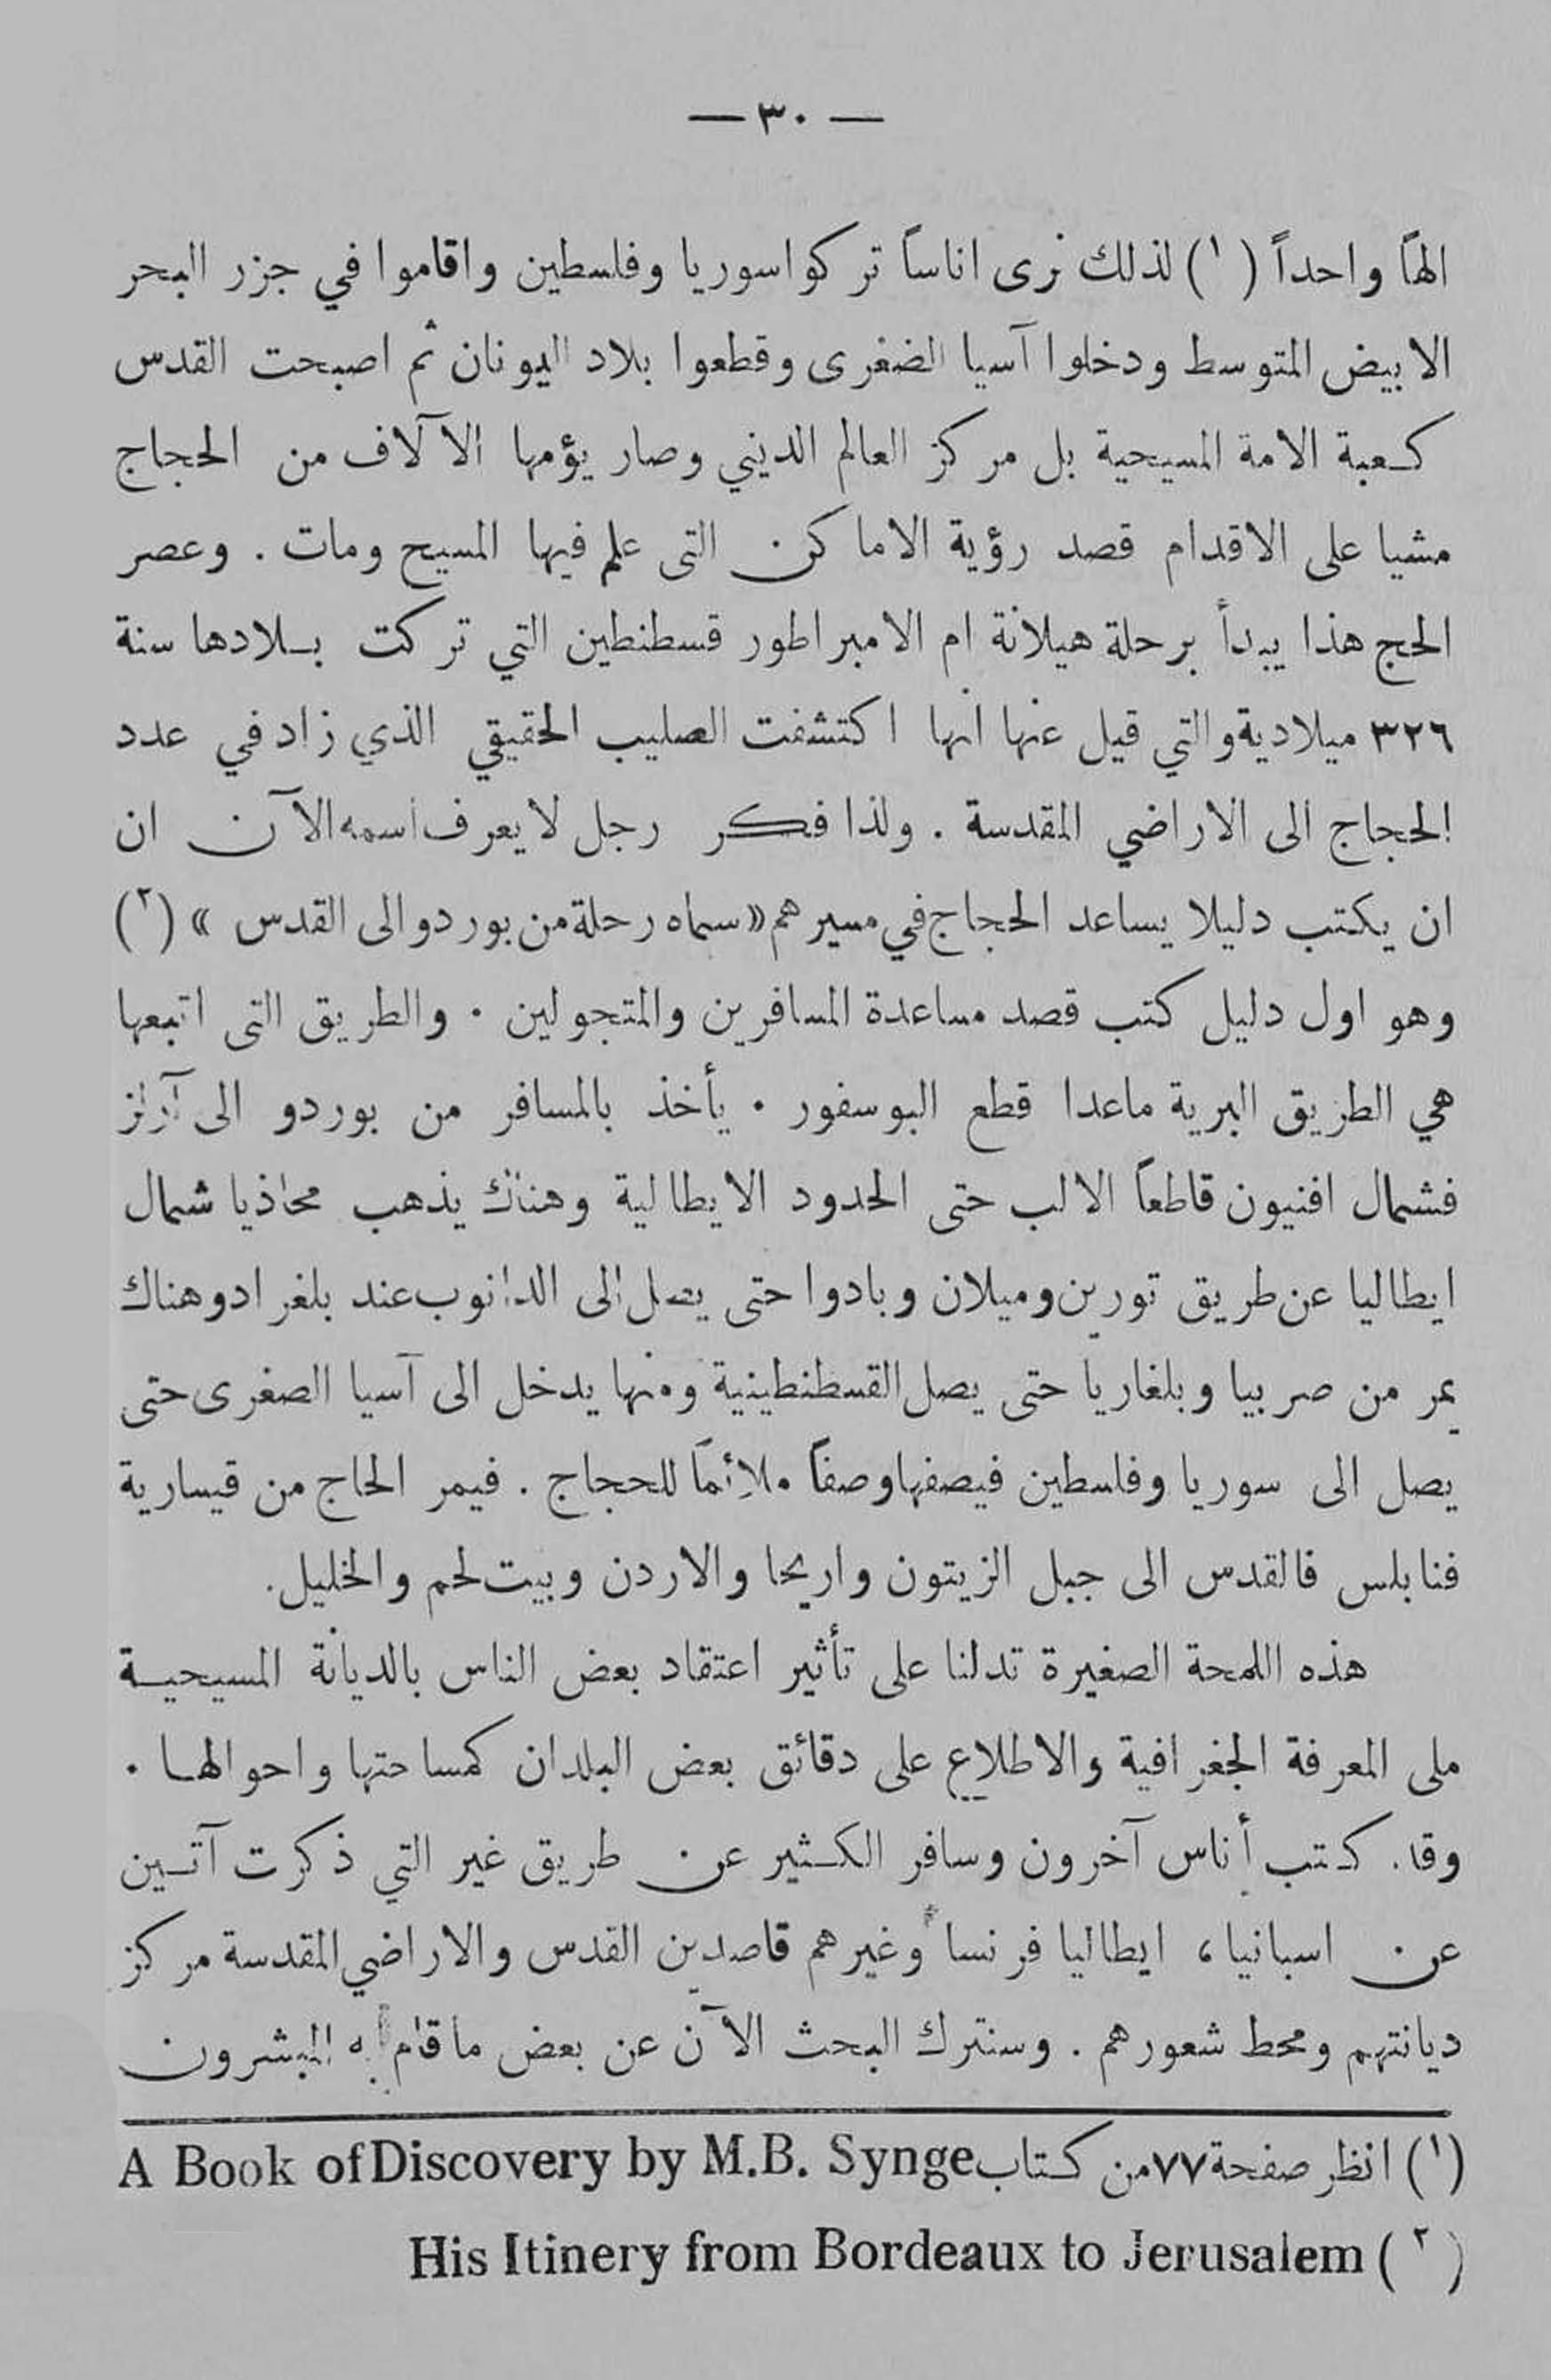 — ٣٠ —
الهاً واحداً (١) لذلك نرى اناساً تركوا سوريا وفلسطين واقاموا في جزر البحر
الابيض المتوسط ودخلوا آسيا الضغرى وقطعوا بلاد اليونان ثم اصبحت القدس
كعبة الامة المسيحية بل مركز العالم الديني وصار يؤمها الآلاف من الحجاج
مشيا على الاقدام قصد رؤية الاماكن التى علم فيها المسيح ومات . وعصر
الحج هذا يبدأ برحلة هيلانة ام الامبراطور قسطنطين التي تركت بلادها سنة
٣٢٦ ميلادية والتي قيل عنها انها اكتشفت الصليب الحقيقي الذي زاد في عدد
الحجاج الى الاراضي المقدسة . ولذا فكر رجل لا يعرف اسمه الآن ان
ان يكتب دليلا يساعد الحجاج في مسيرهم «سماه رحلة من بوردو الى القدس » (٢)
وهو اول دليل كتب قصد مساعدة المسافرين والمتجولين . والطريق التى اتبعها
هي الطريق البرية ماعدا قطع البوسفور . يأخذ بالمسافر من بوردو الى آرلز
فشمال افنيون قاطعاً الالب حتى الحدود الايطالية وهناك يذهب محاذيا شمال
ايطاليا عن طريق تورين وميلان وبادوا حتى يصل الى الدانوب عند بلغراد وهناك
يمر من صربيا وبلغاريا حتى يصل القسطنطينية ومنها يدخل الى آسيا الصغرى حتى
يصل الى سوريا وفلسطين فيصفها وصفاً ملائماً للحجاج . فيمر الحاج من قيسارية
فنابلس فالقدس الى جبل الزيتون واريحا والاردن وبيت لحم والخليل .
هذه اللمحة الصغيرة تدلنا على تأثير اعتقاد بعض الناس بالديانة المسيحية
ملى المعرفة الجغرافية والاطلاع على دقائق بعض البلدان كمساحتها واحوالها .
وقد كتب أناس آخرون وسافر الكثير عن طريق غير التي ذكرت آتين
عن اسبانيا، ايطاليا فرنسا وغيرهم قاصدين القدس والاراضي المقدسة مركز
ديانتهم ومحط شعورهم . وسنترك البحث الآن عن بعض ما قام به المبشرون
(١) انظر صفحة ٧٧ من كتاب A Book of Discovery by M.B. Synge
(٢) His Itinery from Bordeaux to Jerusalem